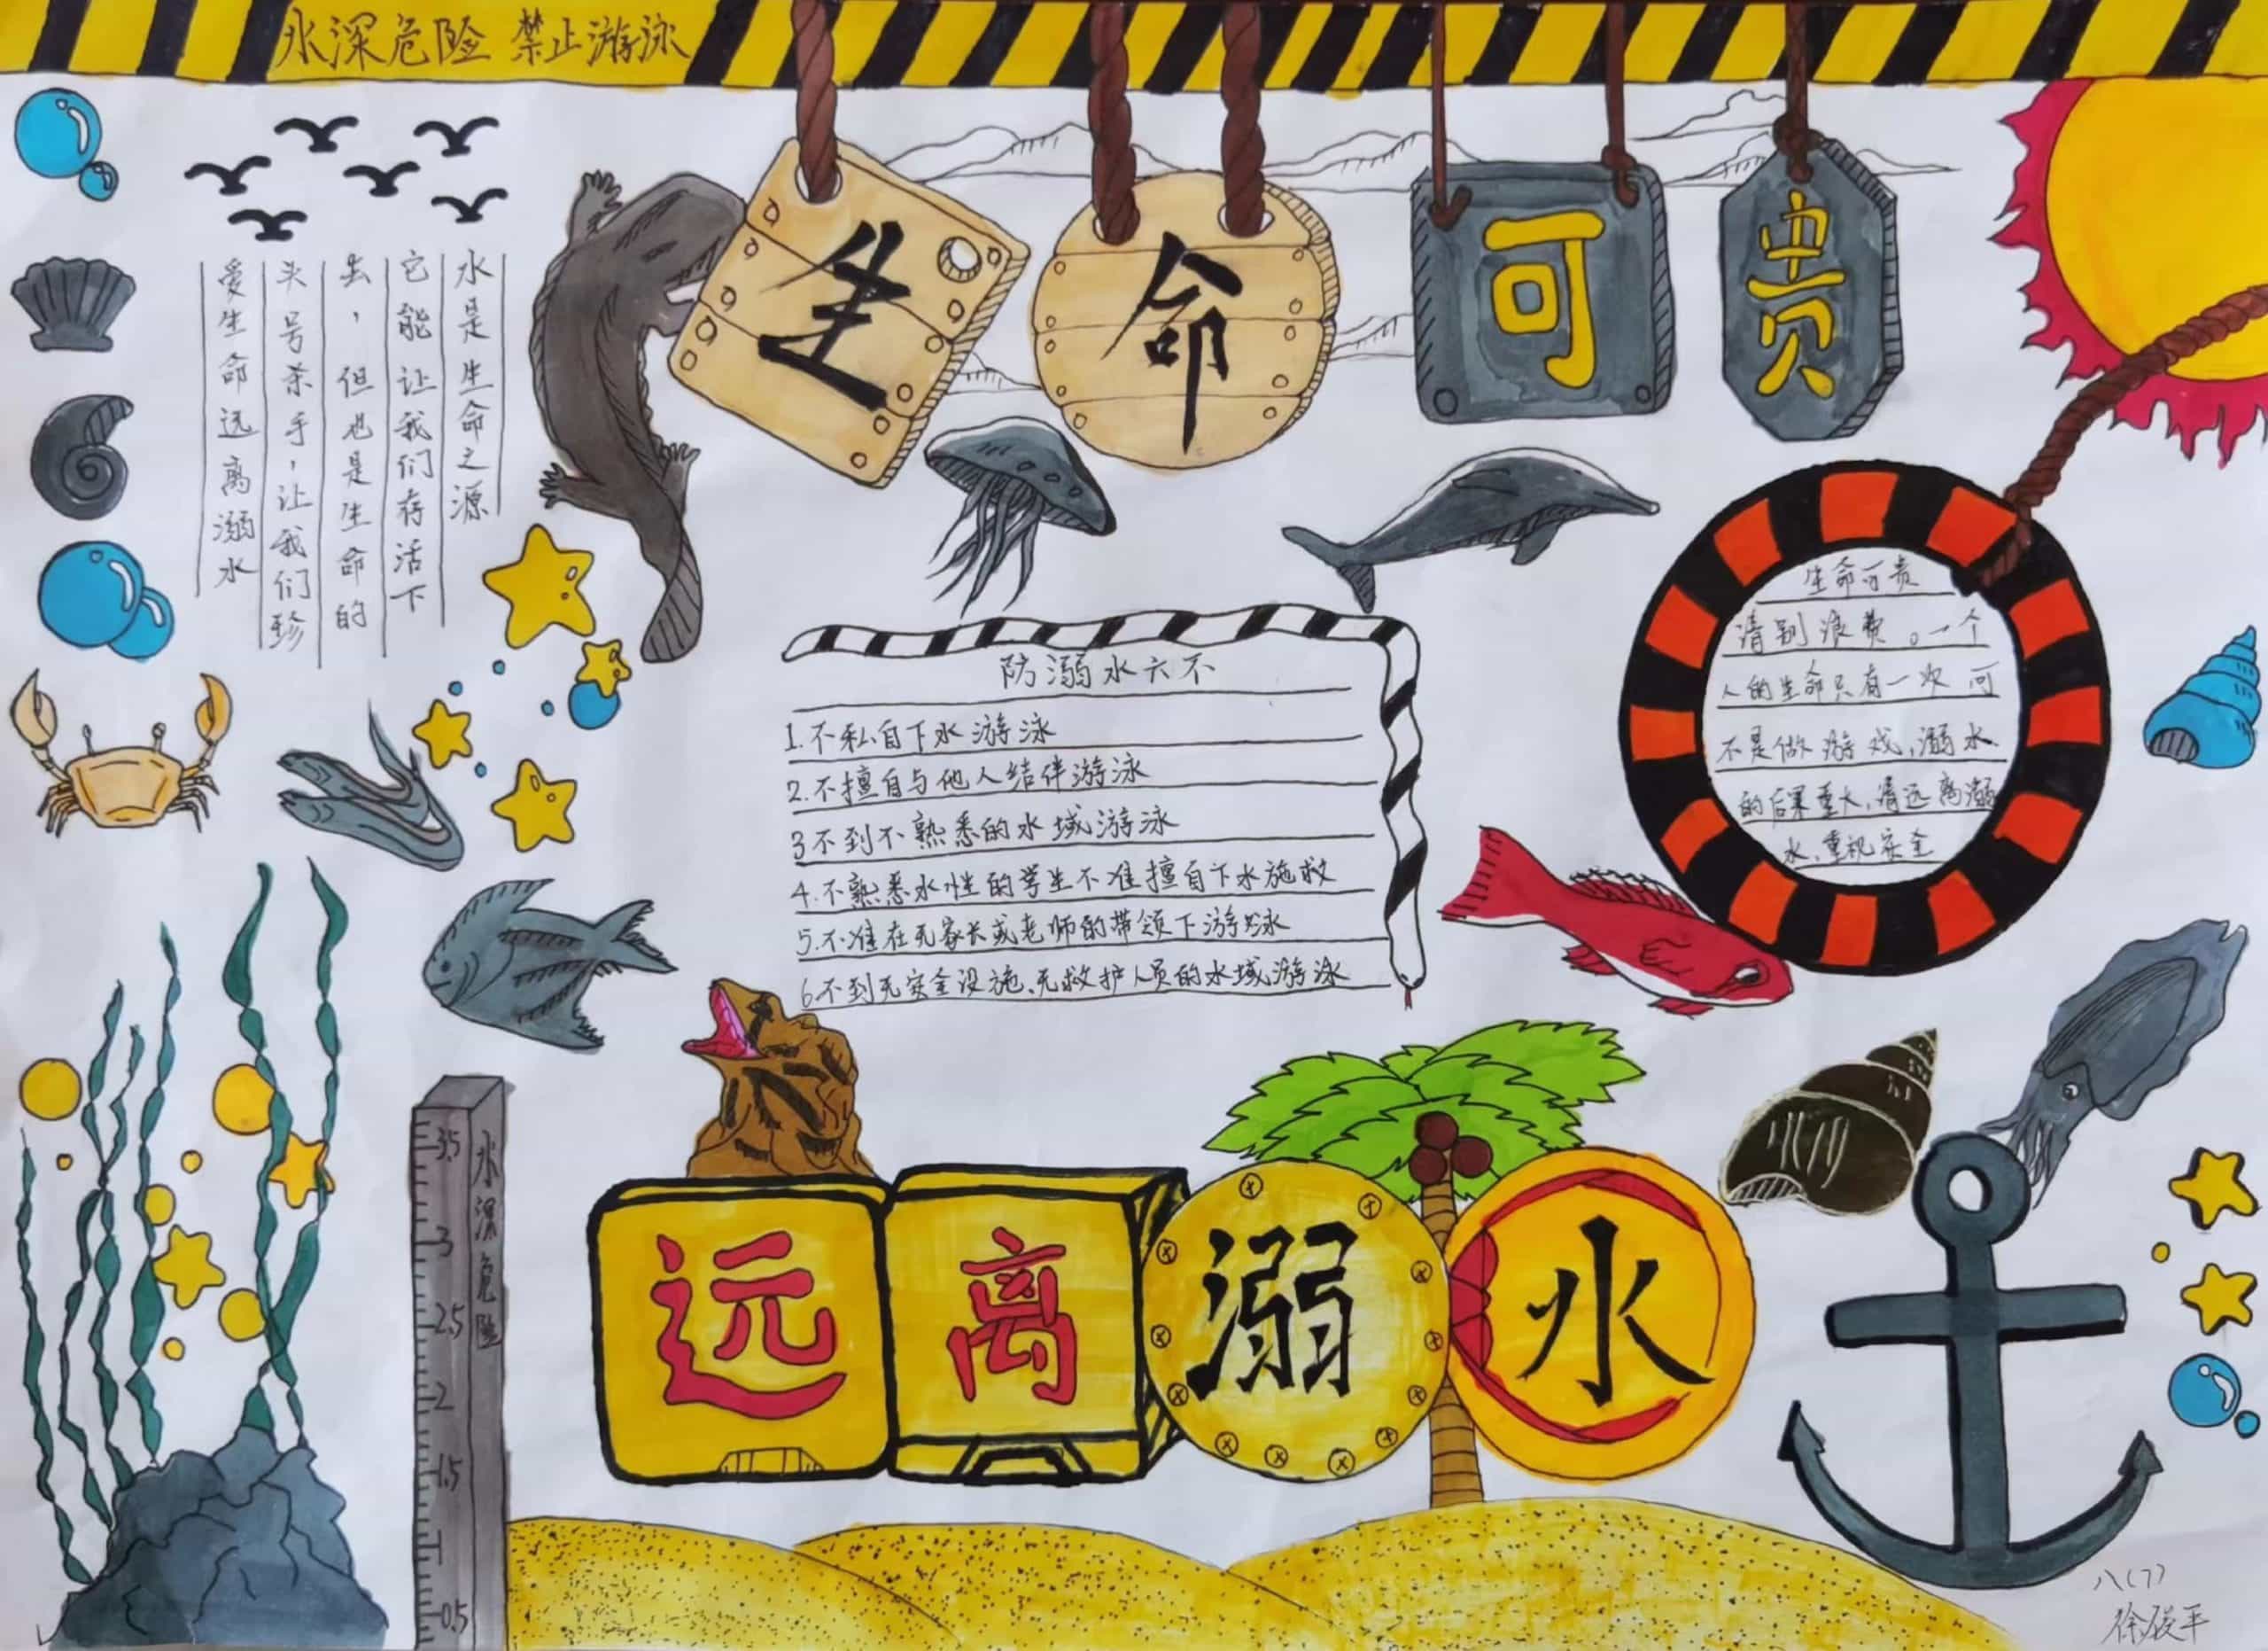 水深危险 禁止游泳
生命可贵
水是生命之源
它能让我们存活下
去，但也是生命的
头号杀手，让我们珍
爱生命远离溺水
防溺水六不
1.不私自下水游泳
2.不擅自与他人结伴游泳
3不到不熟悉的水域游泳
4.不熟悉水性的学生不准擅自下水施救
5.不准在无家长或老师的带领下游泳
6不到无安全设施、无救护人员的水域游泳
生命可贵
请别浪费。一个
人的生命只有一次 可
不是做游戏，溺水
的后果重大，请远离溺
水、重视安全
3.5
3
2.5
2
1.5
1
0.5
水深危险
远离溺水
八(7)
徐
平